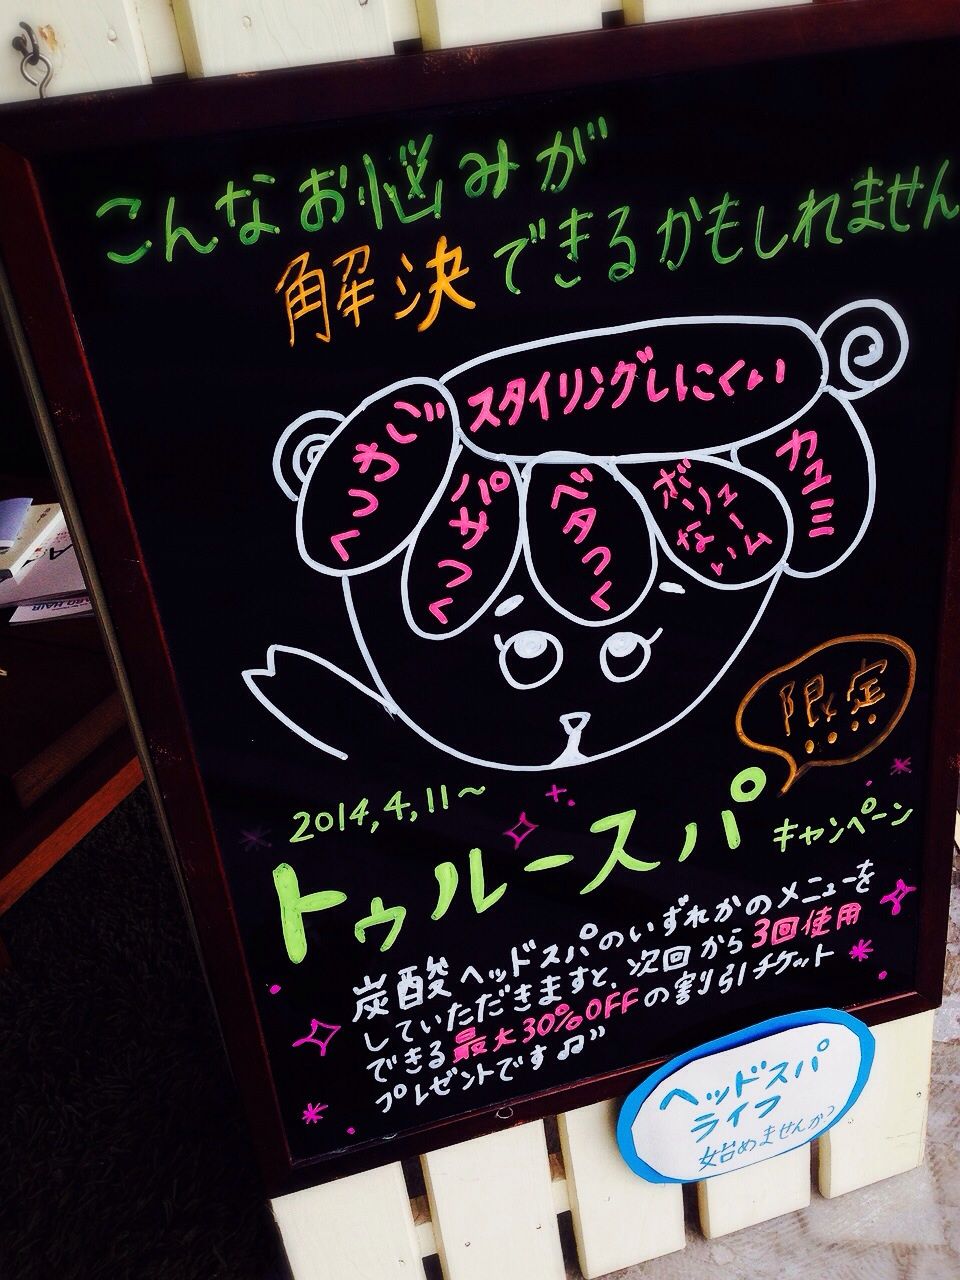 こんなお悩みが
解決できるかもしれません
スタイリングしにくい
パサつく
ベタつく
ボリューム
ない
カユミ
限定
2014,4,11～
トゥルースパ キャンペーン
炭酸ヘッドスパのいずれかのメニューを
していただきますと、次回から3回使用
できる最大30%OFFの割引チケット
プレゼントです♫
ヘッドスパ
ライフ
始めませんか?